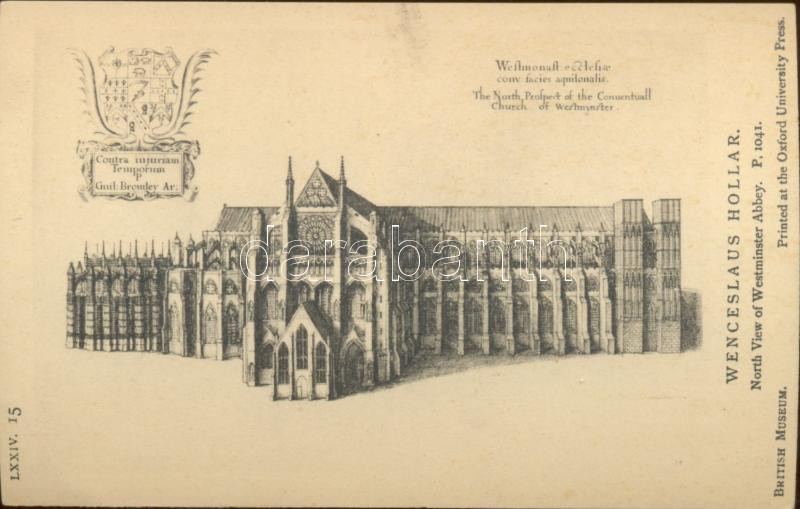 Contra iniuriam
Temporum
P
Guil: Bromley Ar:
Westmonast: ecclesiæ
conv: facies aquilonalis.
The North Prospect of the Conuentuall
Church of Westmynster.
darabanth
WENCESLAUS HOLLAR.
North View of Westminster Abbey. P. 1041.
BRITISH MUSEUM.
Printed at the Oxford University Press.
LXXIV. 15